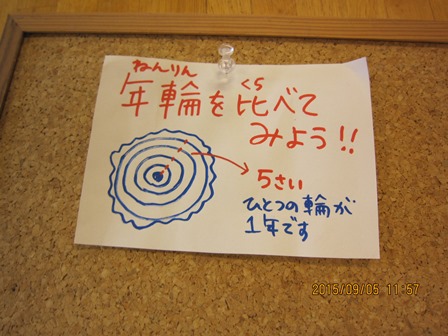 ねんりん
年輪を比べて
くら
みよう!!
5さい
ひとつの輪が
1年です
2015/09/05 11:57